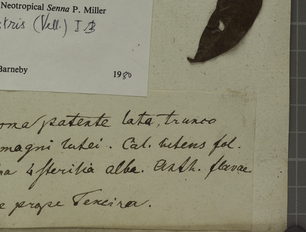 Neotropical Senna P. Miller
tris (Vell.) I & B
Barneby
1980
oma patente lata, trunco
magni lutei. Cal. lutens fol.
na 4 sterilia alba. Anth. flavae
e prope Texeira.